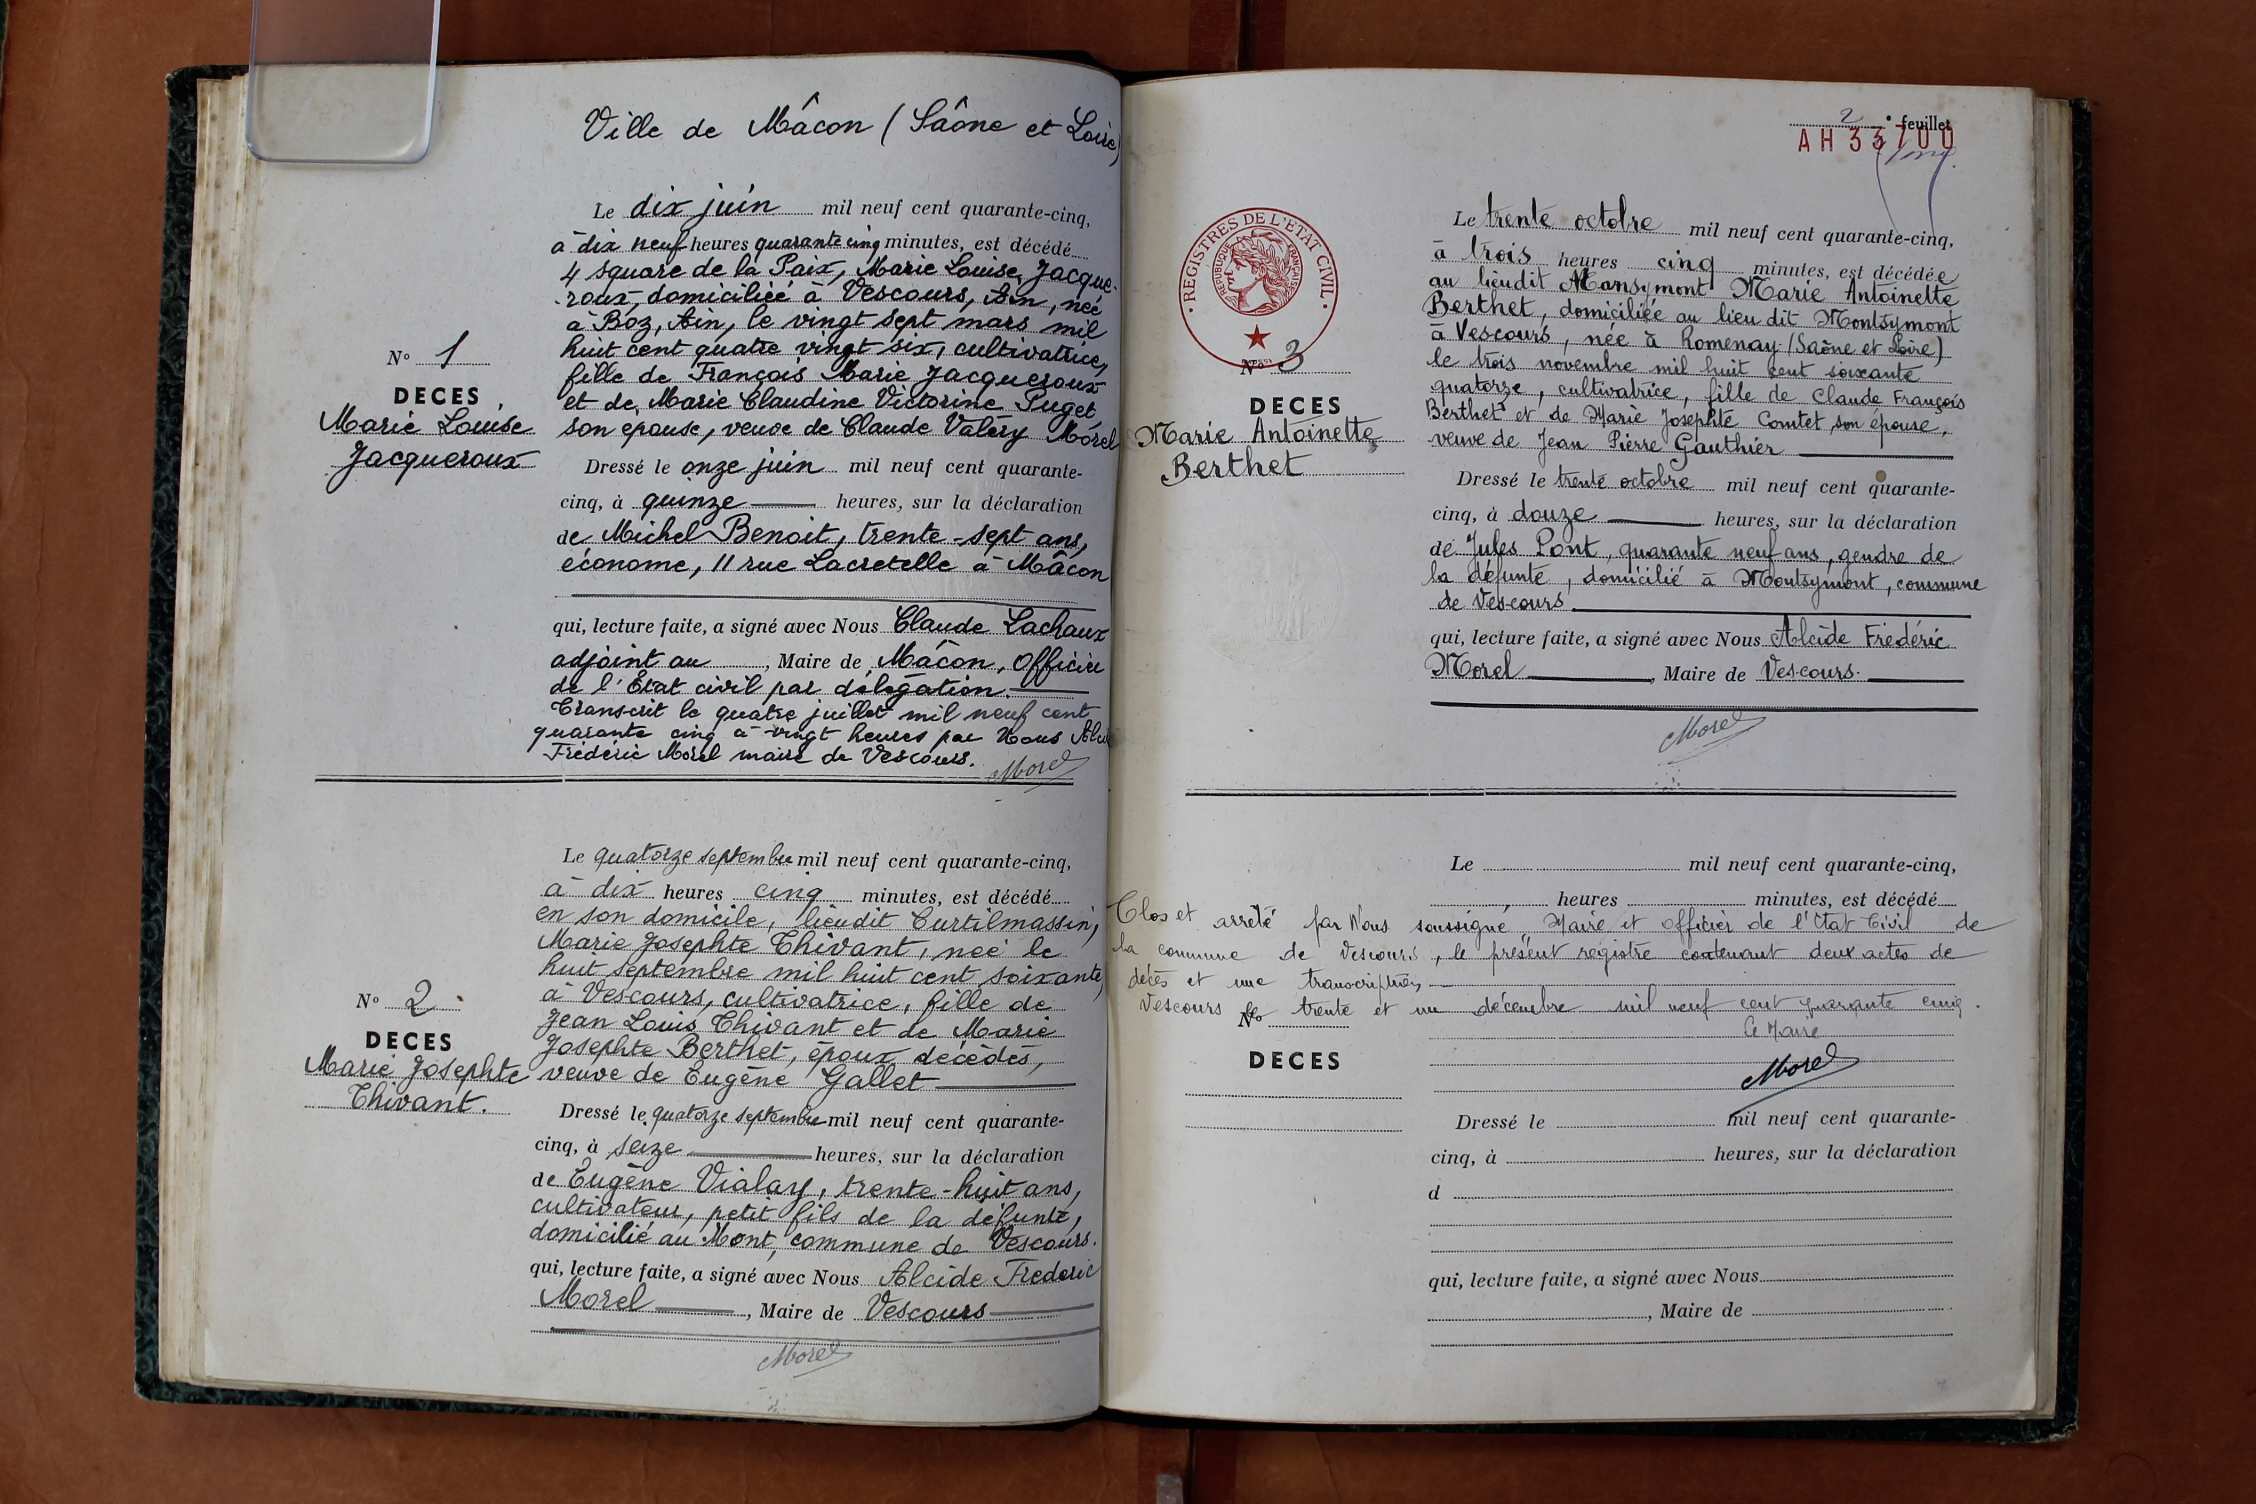 Ville de Mâcon (Saône et Loire)
Le dix juin mil neuf cent quarante-cinq,
à dix neuf heures quarante cinq minutes, est décédé
4 square de la Paix, Marie Louise Jacque-
roux, domiciliée à Vescours, Ain, née
à Boz, Ain, le vingt sept mars mil
huit cent quatre vingt six, cultivatrice,
fille de François Marie Jacqueroux
et de Marie Claudine Victorine Puget,
son épouse, veuve de Claude Valéry Morel
N° 1
DECES
Marie Louise
Jacqueroux
Dressé le onze juin mil neuf cent quarante-
cinq, à quinze heures, sur la déclaration
de Michel Benoit, trente-sept ans,
économe, 11 rue Lacretelle à Mâcon
qui, lecture faite, a signé avec Nous Claude Lachaux
adjoint au, Maire de Mâcon, Officier
de l'Etat civil par délégation.
Transcrit le quatre juillet mil neuf cent
quarante cinq à vingt heures par Nous
Frédéric Morel maire de Vescours.
Morel
Le quatorze septembre mil neuf cent quarante-cinq,
à dix heures cinq minutes, est décédé
en son domicile, lieudit Curtilmassin,
Marie Josephte Thivant, née le
huit septembre mil huit cent soixante,
à Vescours, cultivatrice, fille de
Jean Louis Thivant et de Marie
Josephte Berthet, époux décédés,
veuve de Eugène Gallet
N° 2
DECES
Marie Josephte
Thivant.
Dressé le quatorze septembre mil neuf cent quarante-
cinq, à seize heures, sur la déclaration
de Eugène Vialay, trente-huit ans,
cultivateur, petit fils de la défunte,
domicilié au Mont, commune de Vescours.
qui, lecture faite, a signé avec Nous Alcide Frederic
Morel, Maire de Vescours
Morel
2e feuillet
AH 33700
REGISTRES DE L'ETAT CIVIL
REPUBLIQUE FRANÇAISE
Le trente octobre mil neuf cent quarante-cinq,
à trois heures cinq minutes, est décédée
au lieudit Monsymont Marie Antoinette
Berthet, domiciliée au lieu dit Montsymont
à Vescours, née à Romenay (Saône et Loire)
le trois novembre mil huit cent soixante
quatorze, cultivatrice, fille de Claude François
Berthet et de Marie Josephte Comtet, son épouse,
veuve de Jean Pierre Gauthier
N° 3
DECES
Marie Antoinette
Berthet
Dressé le trente octobre mil neuf cent quarante-
cinq, à douze heures, sur la déclaration
de Jules Pont, quarante neuf ans, gendre de
la défunte, domicilié à Montsymont, commune
de Vescours
qui, lecture faite, a signé avec Nous Alcide Frédéric
Morel, Maire de Vescours.
Morel
Le mil neuf cent quarante-cinq,
heures minutes, est décédé
Clos et arrêté par Nous soussigné, Maire et officier de l'Etat Civil de
la commune de Vescours, le présent registre contenant deux actes de
décès et une transcription
Vescours le trente et un décembre mil neuf cent quarante cinq.
Le Maire
Morel
N°
DECES
Dressé le mil neuf cent quarante-
cinq, à heures, sur la déclaration
d
qui, lecture faite, a signé avec Nous
, Maire de